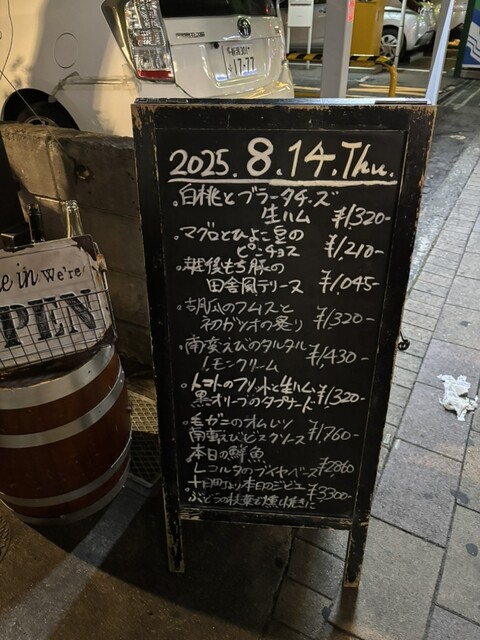 2025.8.14.Thu.
・白桃とブラータチーズ
生ハム ¥1,320-
・マグロとひよこ豆の
ピンチョス ¥1,210-
・越後もち豚の
田舎風テリーヌ ¥1,045-
・胡瓜のフムスと
初ガツオの炙り ¥1,320-
・南蛮えびのタルタル
レモンクリーム ¥1,430-
・トマトのフリットと生ハム
黒オリーブのタプナード ¥1,320-
・毛ガニのオムレツ
南蛮えびビスクソース ¥1,760-
本日の鮮魚
レコルタのブイヤベース ¥2860
十日町より本日のジビエ
ぶどうの枝葉で燻し焼きに ¥3300-
in We're
PEN
17-77